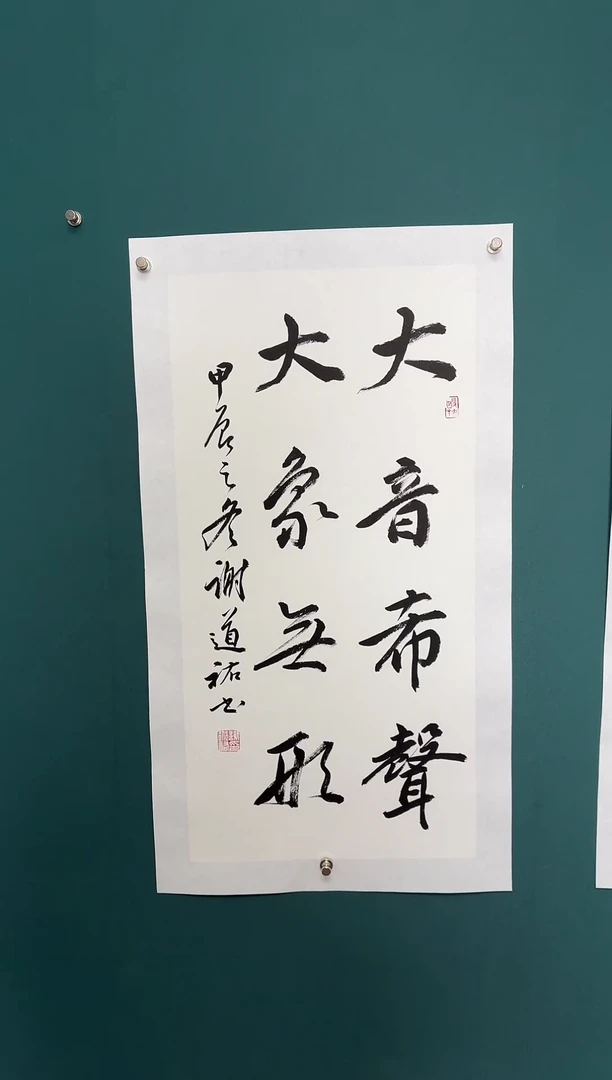 大音希聲
大象無形
甲辰之冬謝道祐书